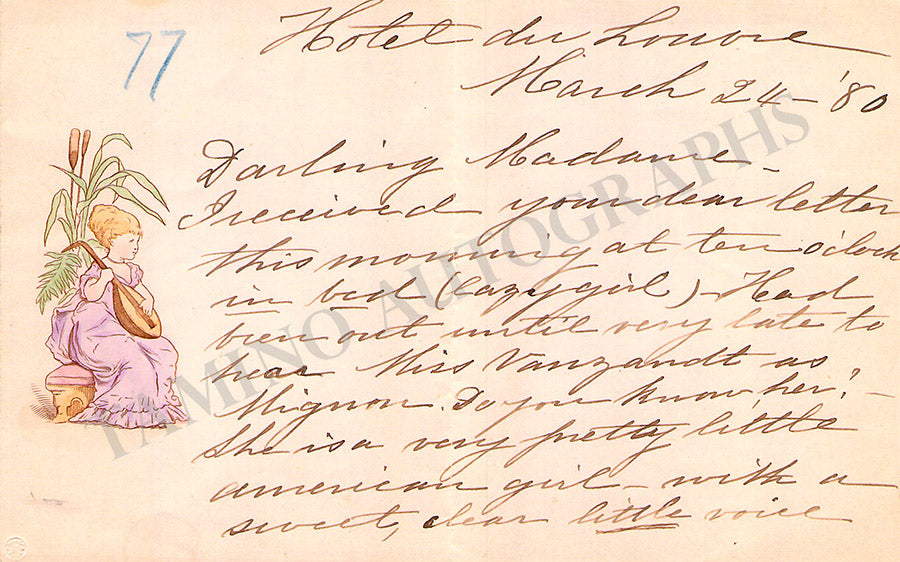 77
Hotel du Louvre
March 24 - '80
Darling Madame -
I received your dear letter
this morning at ten o'clock
in bed (lazy girl) - Had
been out until very late to
hear Miss Vanzandt as
Mignon. Do you know her? -
She is a very pretty little
american girl - with a
sweet, clear little voice
TAMINO AUTOGRAPHS